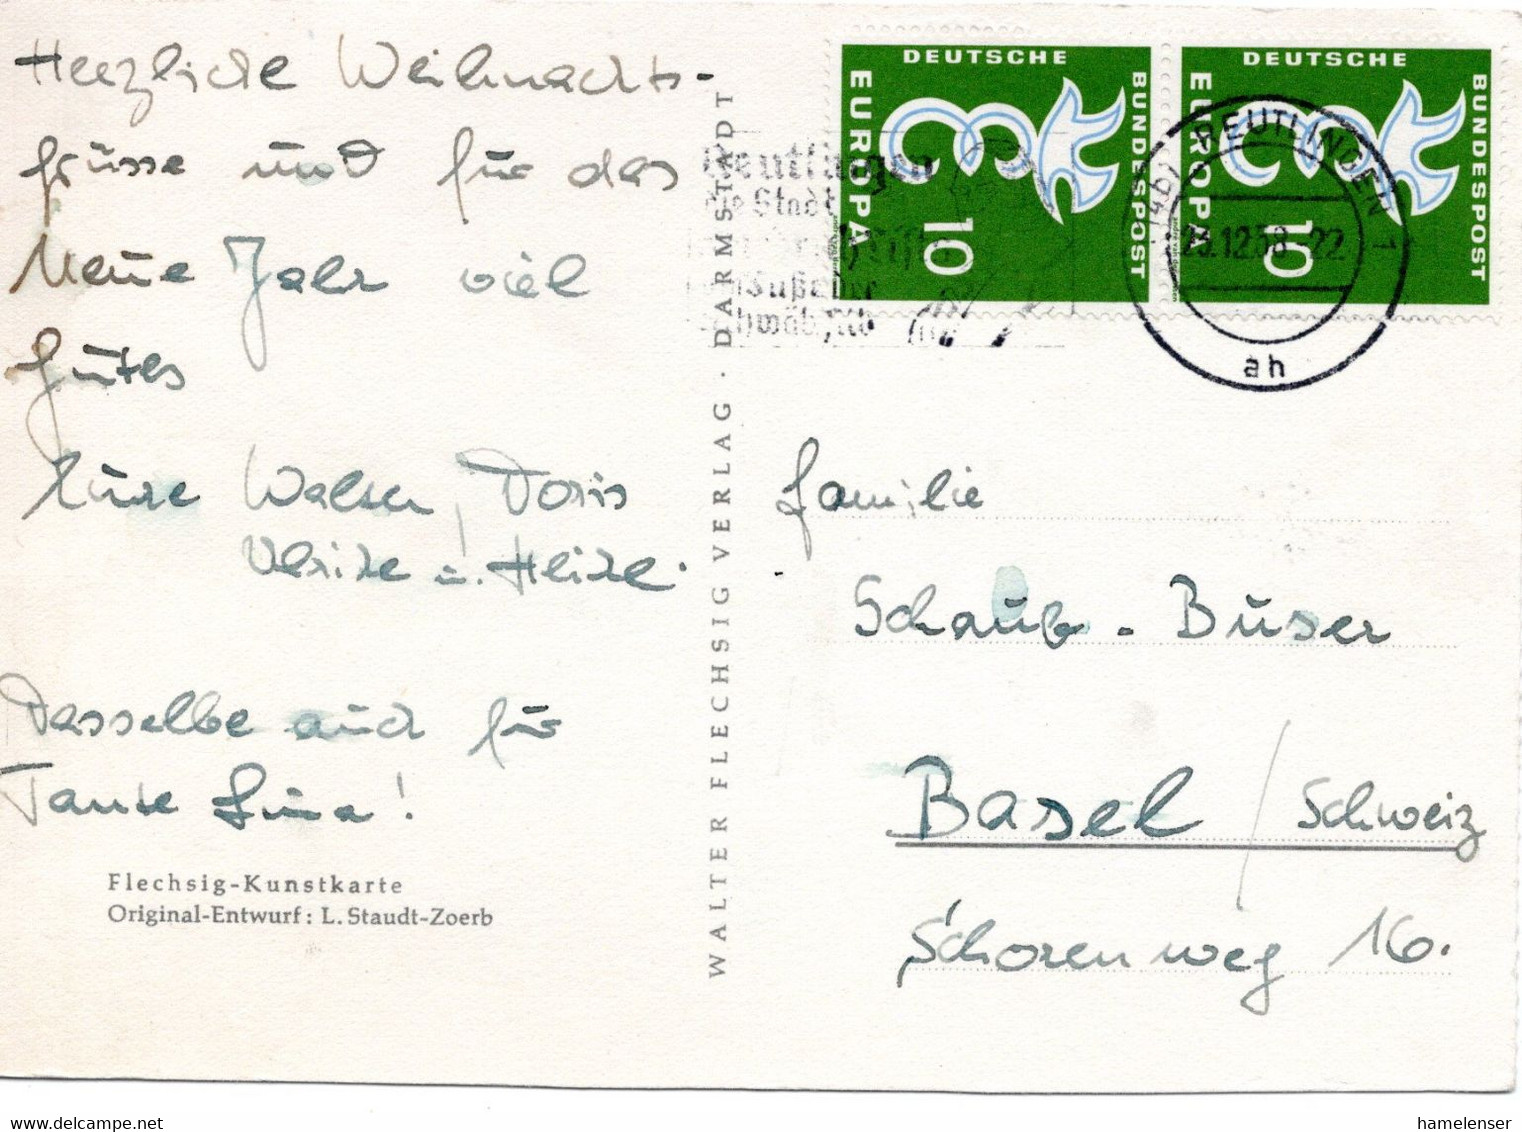 Herzliche Weihnachts-
grüsse und für das
Neue Jahr viel
Gutes
Eure Walter, Doris
Ulrike u. Heike.
Dasselbe auch für
Tante Lina!
Flechsig-Kunstkarte
Original-Entwurf: L. Staudt-Zoerb
WALTER FLECHSIG VERLAG · DARMSTADT
DEUTSCHE
BUNDESPOST
EUROPA
10
DEUTSCHE
BUNDESPOST
EUROPA
10
Reutlingen
die Stadt
am Fuße der
Schwäb. Alb
(14b) REUTLINGEN 1
23.12.58 - 22
ah
Familie
Schaub - Buser
Basel / Schweiz
Schorenweg 16.
hamelenser